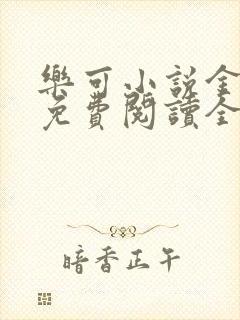 樂可小說全
免費閱讀全
暗香正午